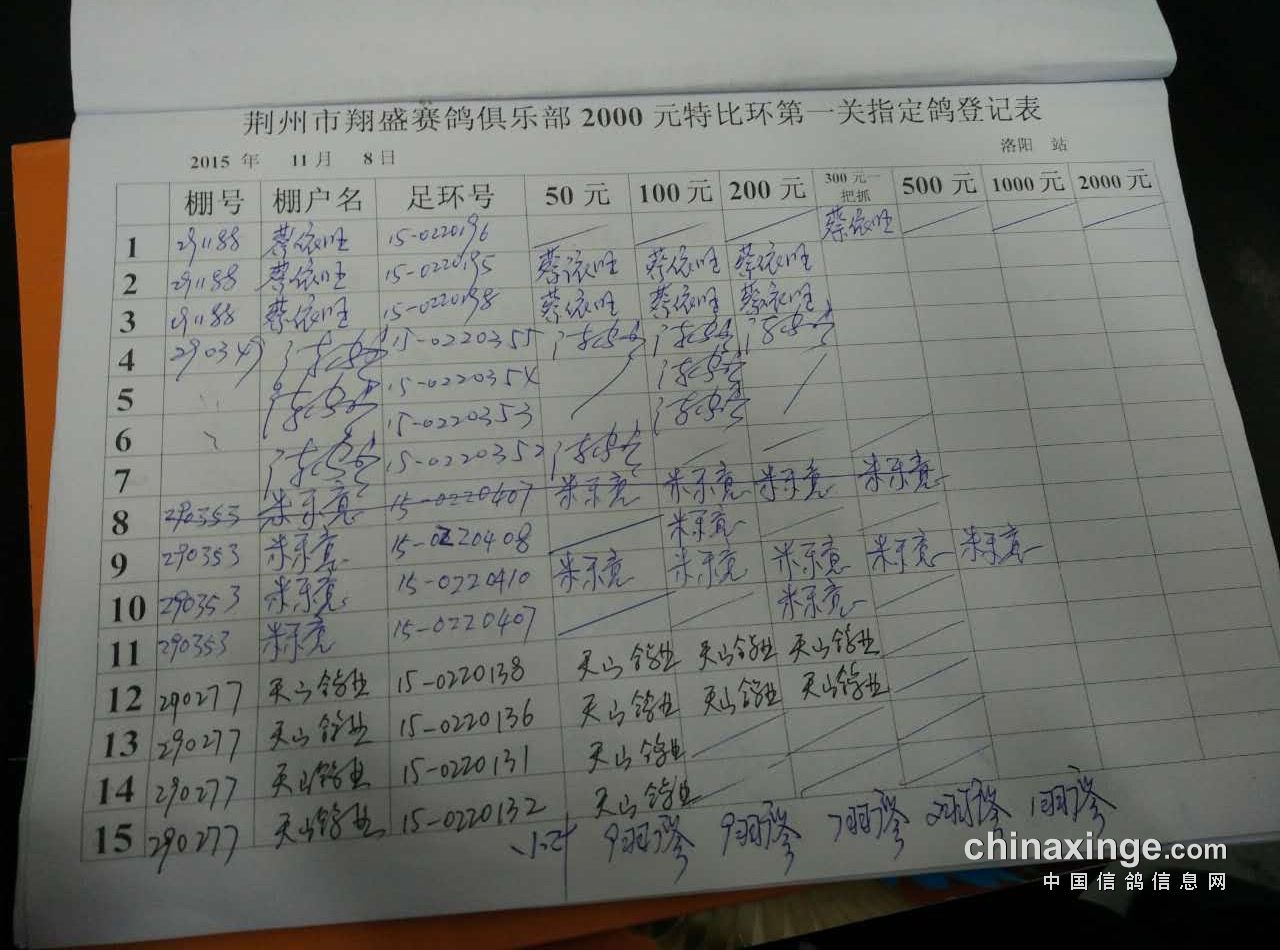 荆州市翔盛赛鸽俱乐部 2000 元特比环第一关指定鸽登记表
2015 年 11 月 8 日 洛阳 站
棚号 棚户名 足环号 50 元 100 元 200 元 300 元一把抓 500 元 1000 元 2000 元
1 291188 蔡依旺 15-0220196 蔡依旺
2 291188 蔡依旺 15-0220195 蔡依旺 蔡依旺 蔡依旺
3 291188 蔡依旺 15-0220198 蔡依旺 蔡依旺 蔡依旺
4 290347 15-0220355
5 15-0220354
6 15-0220353
7 15-0220352
8 290353 米乐亮 15-0220407 米乐亮 米乐亮 米乐亮 米乐亮
9 290353 米乐亮 15-0220408 米乐亮
10 290353 米乐亮 15-0220410 米乐亮 米乐亮 米乐亮 米乐亮 米乐亮
11 290353 米乐亮 15-0220407 米乐亮
12 290277 天山鸽业 15-0220138 天山鸽业 天山鸽业 天山鸽业
13 290277 天山鸽业 15-0220136 天山鸽业 天山鸽业 天山鸽业
14 290277 天山鸽业 15-0220131 天山鸽业
15 290277 天山鸽业 15-0220132 天山鸽业
小计 9羽 9羽 7羽 2羽 1羽
chinaxinge.com
中国信鸽信息网